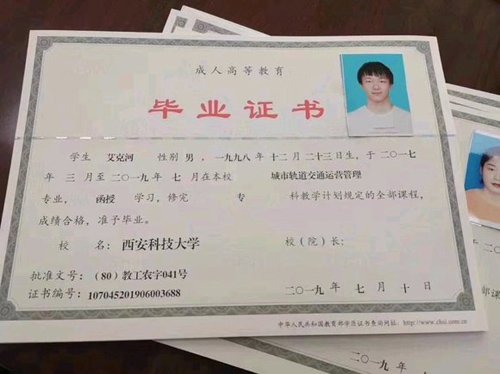 成人高等教育
毕业证书
学生 艾克河 性别 男，一九九八年 十二月 二十三日生，于 二〇一七
年 三 月至 二〇一九 年 七 月在本校 城市轨道交通运营管理
专业， 函授 学习，修完 专 科教学计划规定的全部课程，
成绩合格，准予毕业。
校 名： 西安科技大学 校（院）长：
批准文号：（80）教工农字041号
证书编号： 107045201906003688 二〇一九 年 七 月 十 日
中华人民共和国教育部学历证书查询网址：http://www.chsi.com.cn
二〇一九